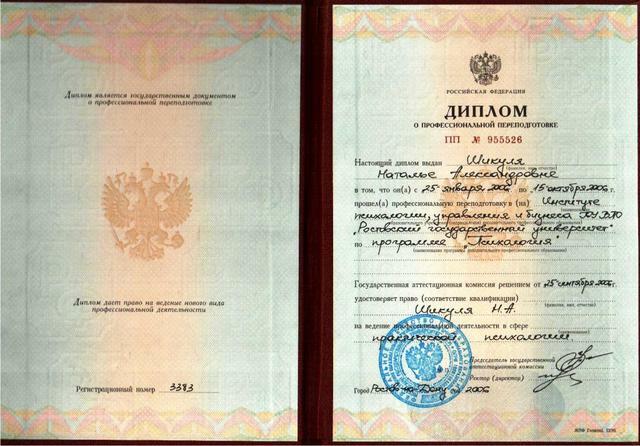 Диплом является государственным документом
о профессиональной переподготовке
Диплом дает право на ведение нового вида
профессиональной деятельности
Регистрационный номер 3383
РОССИЙСКАЯ ФЕДЕРАЦИЯ
ДИПЛОМ
О ПРОФЕССИОНАЛЬНОЙ ПЕРЕПОДГОТОВКЕ
ПП № 955526
Настоящий диплом выдан Шикуля
(фамилия, имя, отчество)
Наталье Александровне
в том, что он(а) с 25 января 2006 по 15 октября 2006
прошел(а) профессиональную переподготовку в (на) Институте
психологии, управления и бизнеса ГОУ ВПО
"Ростовский государственный университет"
по программе "Психология"
Государственная аттестационная комиссия решением от 25 сентября 2006
удостоверяет право (соответствие квалификации)
(фамилия, имя, отчество)
Шикуля Н.А.
на ведение профессиональной деятельности в сфере
практической психологии
Председатель государственной
аттестационной комиссии
Ректор (директор)
Город Ростов-на-Дону год 2006